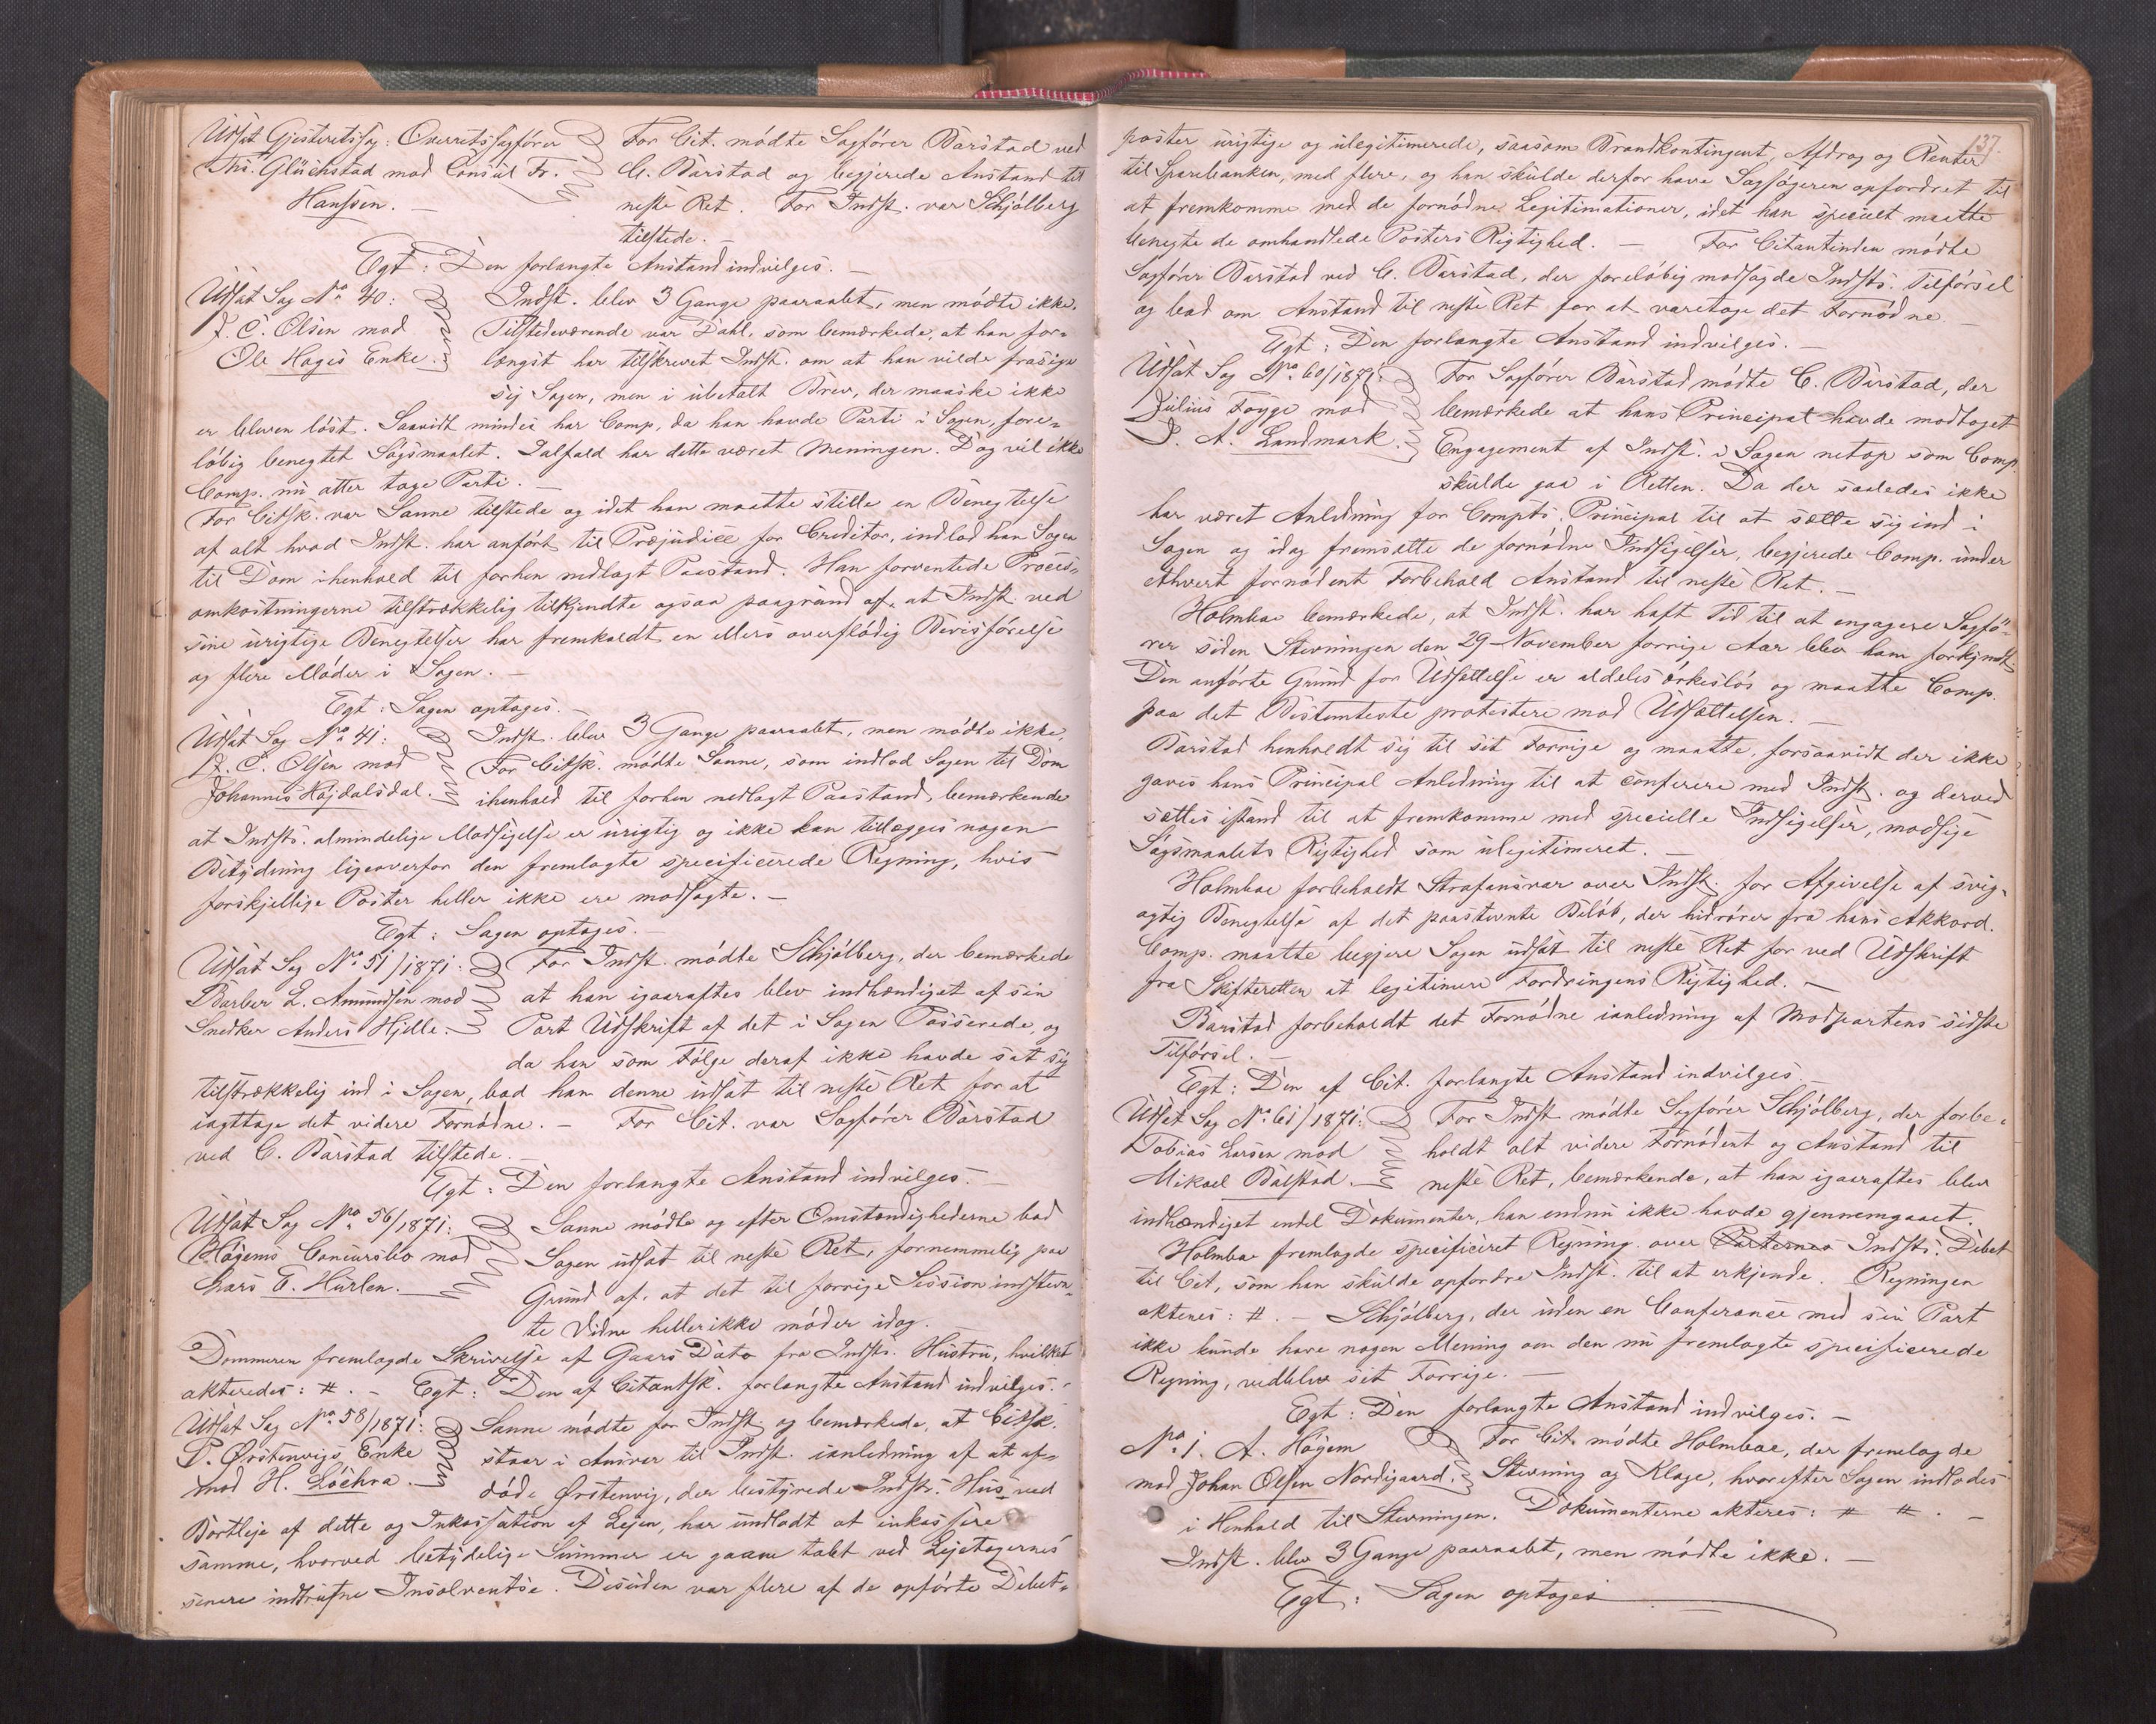 Udsat Gjesteretssag: Overretssagfører
Ths. Glückstad mod Consul Fr.
Hanssen. —
For Cit. mødte Sagfører Barstad ved
C. Barstad og begjerede Anstand til
neste Ret. For Indst. var Schjølberg
tilstede. —
Egt: Den forlangte Anstand indvilges. —
Udsat Sag No. 40:
J. C. Olsen mod
Ole Hages Enke.
Indst. blev 3 Gange paaraabt, men mødte ikke.
Tilstedeværende var Dahl, som bemærkede, at han for-
længst har tilskrevet Indst. om at han vilde frasige
sig Sagen, men i ubetalt Brev, der maaske ikke
er bleven løst. Saavidt mindes har Comp, da han havde Parti i Sagen, fore-
løbig benegtet Søgsmaalet. Ialfald har dette været Meningen. Dog vil ikke
Comp. nu atter tage Parti. —
For Citsk. var Sanne tilstede og idet han maatte stille en Benegtelse
af alt hvad Indst. har anført til Præjudice for Creditor, indlod han Sagen
til Dom ihenhold til forhen nedlagt Paastand. Han forventede Proces-
omkostningerne tilstrækkelig tilkjendte ogsaa paagrund af, at Indst. ved
sine urigtige Benegtelser har fremkaldt en ellers overflødig Bevisførelse
og flere Møder i Sagen. —
Egt: Sagen optages. —
Udsat Sag No. 41:
J. C. Olsen mod
Johannes Højdalsdal.
Indst. blev 3 Gange paaraabt, men mødte ikke,
For Citsk. mødte Sanne, som indlod Sagen til Dom
ihenhold til forhen nedlagt Paastand, bemærkende
at Indsts. almindelige Modsigelse er urigtig og ikke kan tillægges nogen
Betydning ligeoverfor den fremlagte specificerede Regning, hvis
forskjellige Poster heller ikke ere modsagte. —
Egt: Sagen optages. —
Udsat Sag No. 51/1871:
Barber L. Amundsen mod
Snedker Anders Hjelle.
For Indst. mødte Schjølberg, der bemærkede
at han igaaraftes blev indhændiget af sin
Part Udskrift af det i Sagen Passerede, og
da han som Følge deraf ikke havde sat sig
tilstrækkelig ind i Sagen, bad han denne udsat til neste Ret for at
iagttage det videre Fornødne. — For Cit. var Sagfører Barstad
ved C. Barstad tilstede. —
Egt: Den forlangte Anstand indvilges. —
Udsat Sag No. 56/1871:
Høgems Concursbo mod
Lars E. Hurlen.
Sanne mødte og efter Omstændighederne bad
Sagen udsat til neste Ret, fornemmelig paa
Grund af, at det til forrige Session indstevn-
te Vidne heller ikke møder idag. —
Dommeren fremlagde Skrivelse af Gaars Dato fra Indsts. Hustru, hvilket
akteredes: #. — Egt: Den af Citantsk. forlangte Anstand indvilges. —
Udsat Sag No. 58/1871:
P. Ørstenvigs Enke
mod H. Løchra.
Sanne mødte for Indst. og bemærkede, at Citsk.
staar i Ansvar til Indst. ianledning af at af-
døde Ørstenvig, der bestyrede Indsts. Hus ved
Bortleje af dette og Inkassation af Lejen, har undladt at inkassere
samme, hvorved betydelige Summer er gaaen tabt ved Lejetagernes
senere indtrufne Insolventse. Desuden var flere af de opførte Debet-
137.
poster urigtige og ulegitimerede, saasom Brandkontingent, Afdrag og Renter
til Sparebanken, med flere, og han skulde derfor have Sagsøgeren opfordret til
at fremkomme med de fornødne Legitimationer, idet han specielt maatte
benegte de omhandlede Posters Rigtighed. — For Citantinden mødte
Sagfører Barstad ved C. Barstad, der foreløbig modsagde Indsts. Tilførsel
og bad om Anstand til neste Ret for at varetage det Fornødne —
Egt: Den forlangte Anstand indvilges. —
Udsat Sag No. 60/1871:
Julius Foyge mod
J. A. Landmark.
For Sagfører Barstad mødte C. Barstad, der
bemærkede at hans Principal havde modtaget
Engagement af Indst. i Sagen netop som Comp.
skulde gaa i Retten. Da der saaledes ikke
har været Anledning for Compts. Principal til at sætte sig ind i
Sagen og idag fremsætte de fornødne Indsigelser, begjerede Comp. under
ethvert fornødent Forbehold Anstand til neste Ret. —
Holmboe bemærkede, at Indst. har haft Tid til at engagere Sagfø-
rer siden Stevningen den 29 November forrige Aar blev ham forkyndt.
Den anførte Grund for Udsættelse er aldeles ørkesløs og maatte Comp.
paa det Bestemteste protestere mod Udsættelsen. —
Barstad henholdt sig til sit Forrige og maatte, forsaavidt der ikke
gaves hans Principal Anledning til at conferere med Indst. og derved
sættes istand til at fremkomme med specielle Indsigelser, modsige
Søgsmaalets Rigtighed som ulegitimeret. —
Holmboe forbeholdt Strafansvar over Indst. for Afgivelse af svig-
agtig Benegtelse af det paastevnte Beløb, der hidrører fra hans Akkord.
Comp. maatte begjere Sagen udsat til neste Ret for ved Udskrift
fra Skifteretten at legitimere Fordringens Rigtighed. —
Barstad forbeholdt det Fornødne ianledning af Modpartens sidste
Tilførsel. —
Egt: Den af Cit. forlangte Anstand indvilges —
Udsat Sag No. 61/1871:
Tobias Larsen mod
Mikael Balstad.
For Indst mødte Sagfører Schjølberg, der forbe-
holdt alt videre Fornødent og Anstand til
neste Ret, bemærkende, at han igaaraftes blev
indhændiget endel Dokumenter, han endnu ikke havde gjennemgaaet.
Holmboe fremlagde specificeret Regning over Parternes Indsts. Debet
til Cit, som han skulde opfordre Indst. til at erkjende. Regningen
akteres: #. — Schjølberg, der uden en Conferance med sin Part
ikke kunde have nogen Mening om den nu fremlagte specificerede
Regning, vedblev sit Forrige. —
Egt: Den forlangte Anstand indvilges. —
No. 1. A. Høgem
mod Johan Olsen Nordigaard.
For Cit. mødte Holmboe, der fremlagde
Stevning og Klage, hvorefter Sagen indlodes
i Henhold til Stevningen. Dokumenterne akteres: # #. —
Indst. blev 3 Gange paaraabt, men mødte ikke. —
Egt: Sagen optages